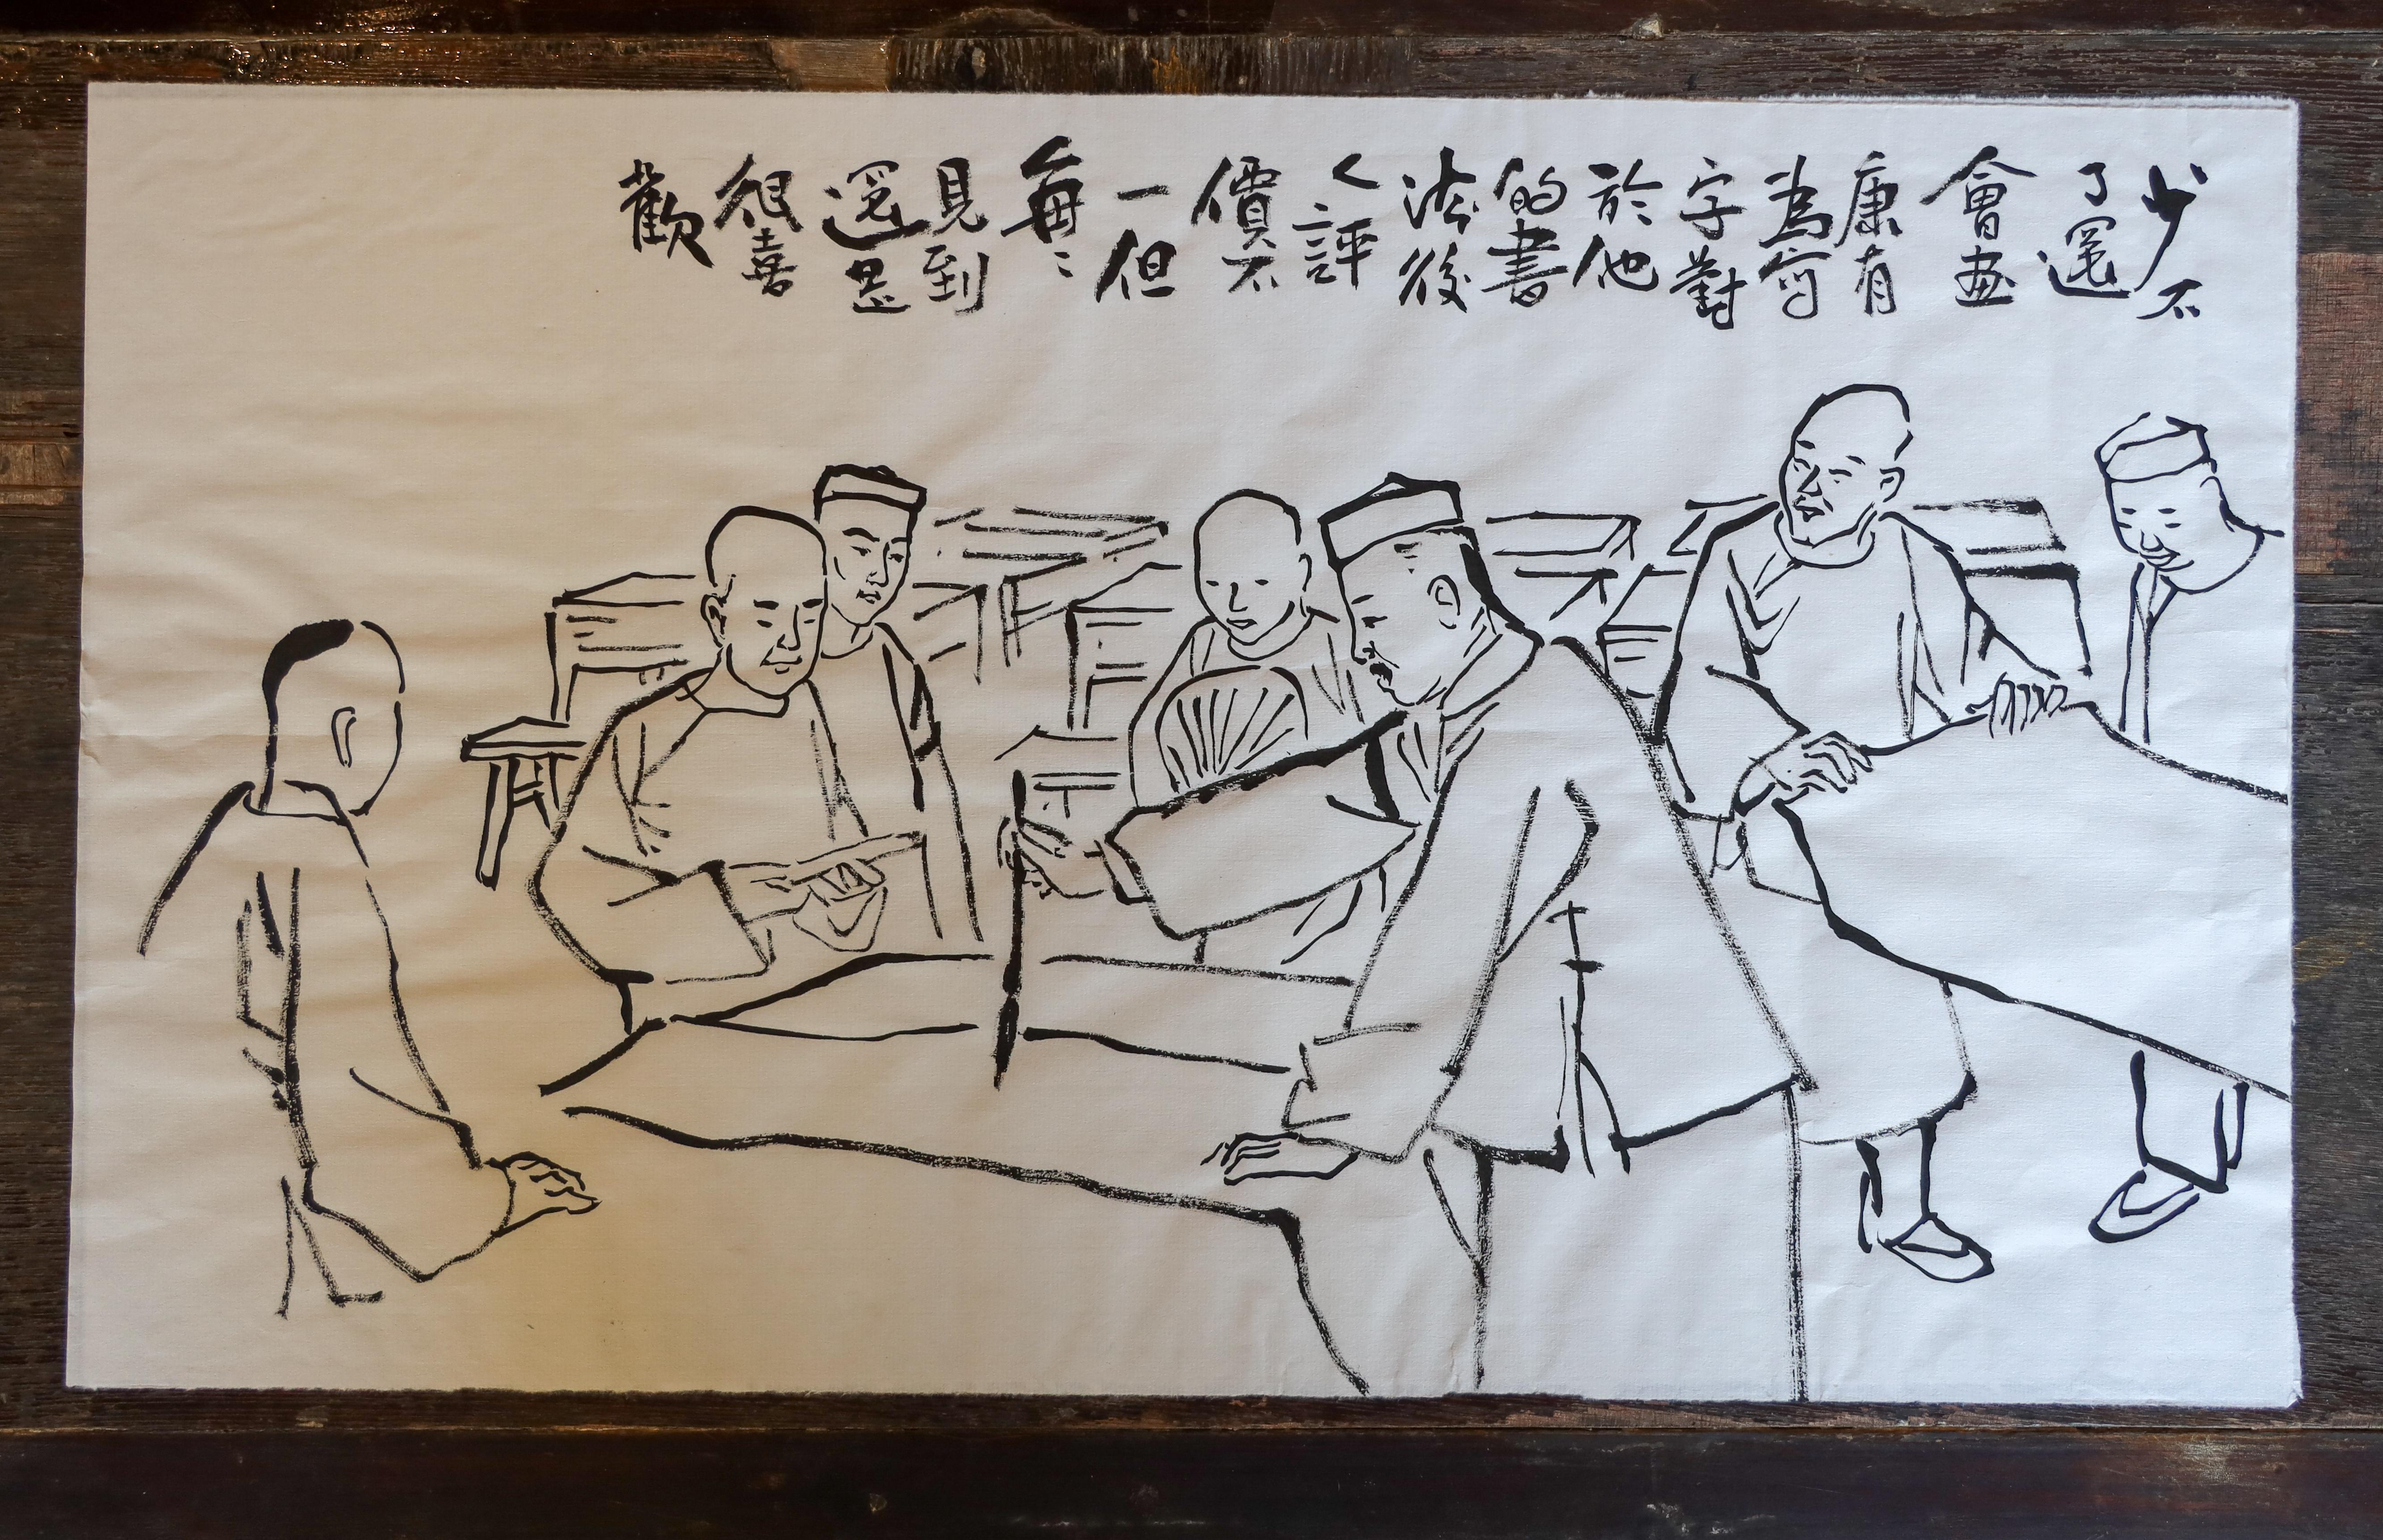 少不
了還
會畫
康有
為寫
字對
於他
的書
法後
人評
價不
一但
每々
見到
還是
很喜
歡